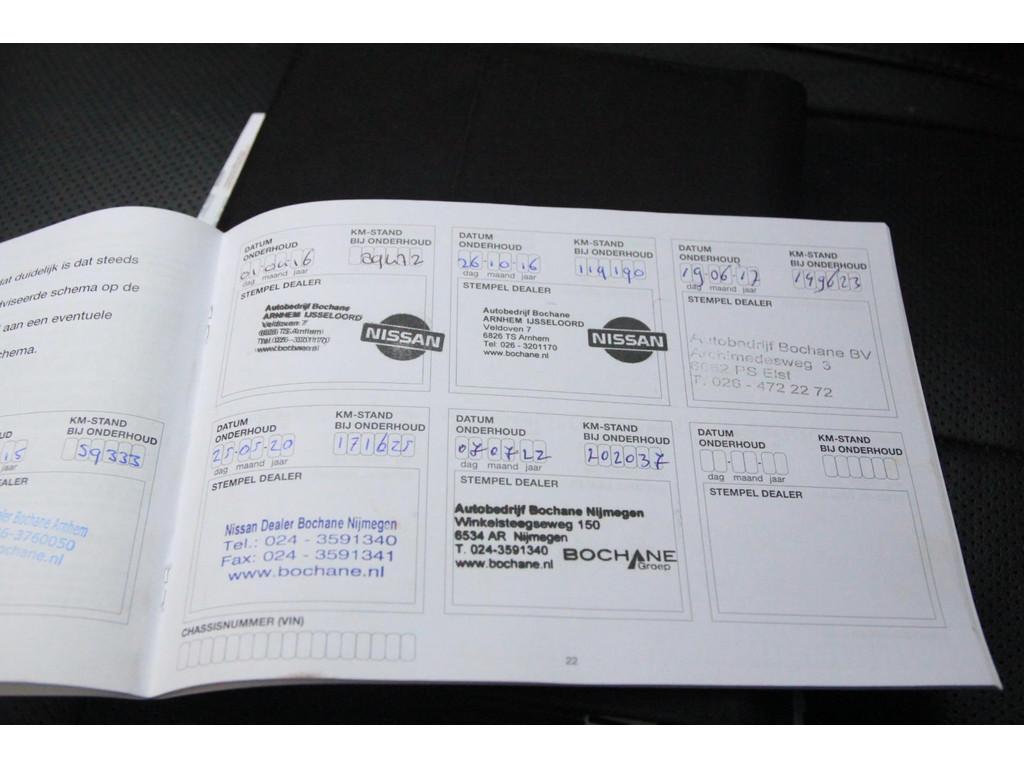 dat duidelijk is dat steeds
dviseerde schema op de
aan een eventuele
chema.
KM-STAND
BIJ ONDERHOUD
15
59333
jaar
ALER
Bochane Arnhem
6-3760050
ochane.nl
DATUM
ONDERHOUD
KM-STAND
BIJ ONDERHOUD
dag maand jaar
STEMPEL DEALER
Autobedrijf Bochane
ARNHEM IJSSELOORD
Veldoven 7
6826 TS Arnhem
www.bochane.nl
NISSAN
DATUM
ONDERHOUD
KM-STAND
BIJ ONDERHOUD
26-10-16
119190
dag maand jaar
STEMPEL DEALER
Autobedrijf Bochane
ARNHEM IJSSELOORD
Veldoven 7
6826 TS Arnhem
Tel: 026 - 3201170
www.bochane.nl
NISSAN
DATUM
ONDERHOUD
KM-STAND
BIJ ONDERHOUD
19-06-17
149623
dag maand jaar
STEMPEL DEALER
Autobedrijf Bochane BV
Archimedesweg 3
6662 PS Elst
T. 026 - 472 22 72
DATUM
ONDERHOUD
KM-STAND
BIJ ONDERHOUD
25-05-20
171625
dag maand jaar
STEMPEL DEALER
Nissan Dealer Bochane Nijmegen
Tel.: 024 - 3591340
Fax: 024 - 3591341
www.bochane.nl
DATUM
ONDERHOUD
KM-STAND
BIJ ONDERHOUD
07-07-22
202037
dag maand jaar
STEMPEL DEALER
Autobedrijf Bochane Nijmegen
Winkelsteegseweg 150
6534 AR Nijmegen
T. 024-3591340
www.bochane.nl
BOCHANE
Groep
DATUM
ONDERHOUD
KM-STAND
BIJ ONDERHOUD
dag maand jaar
STEMPEL DEALER
CHASSISNUMMER (VIN)
22